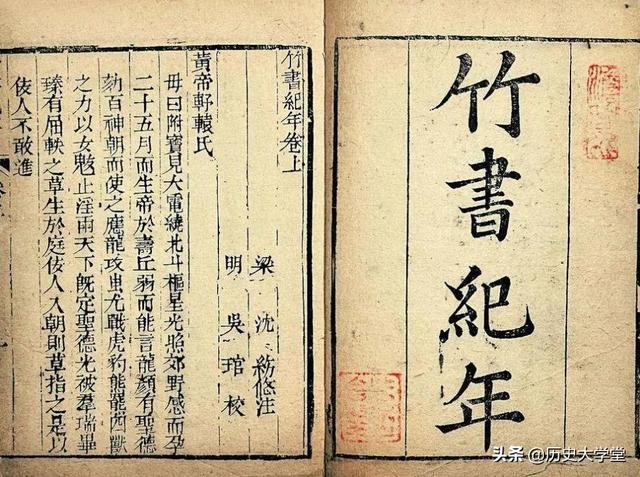 竹書紀年
竹書紀年卷上
梁 沈 注
明 吳 琯 校
黃帝軒轅氏
母曰附寶見大電繞北斗樞星光照郊野感而孕
二十五月而生帝於壽丘弱而能言龍顏有聖德
劾百神朝而使之應龍攻蚩尤戰虎豹熊羆四獸
之力以女魃止淫雨天下旣定聖德光被羣瑞畢
臻有屈軼之草生於庭佞人入朝則草指之是以
佞人不敢進
头条 @历史大学堂